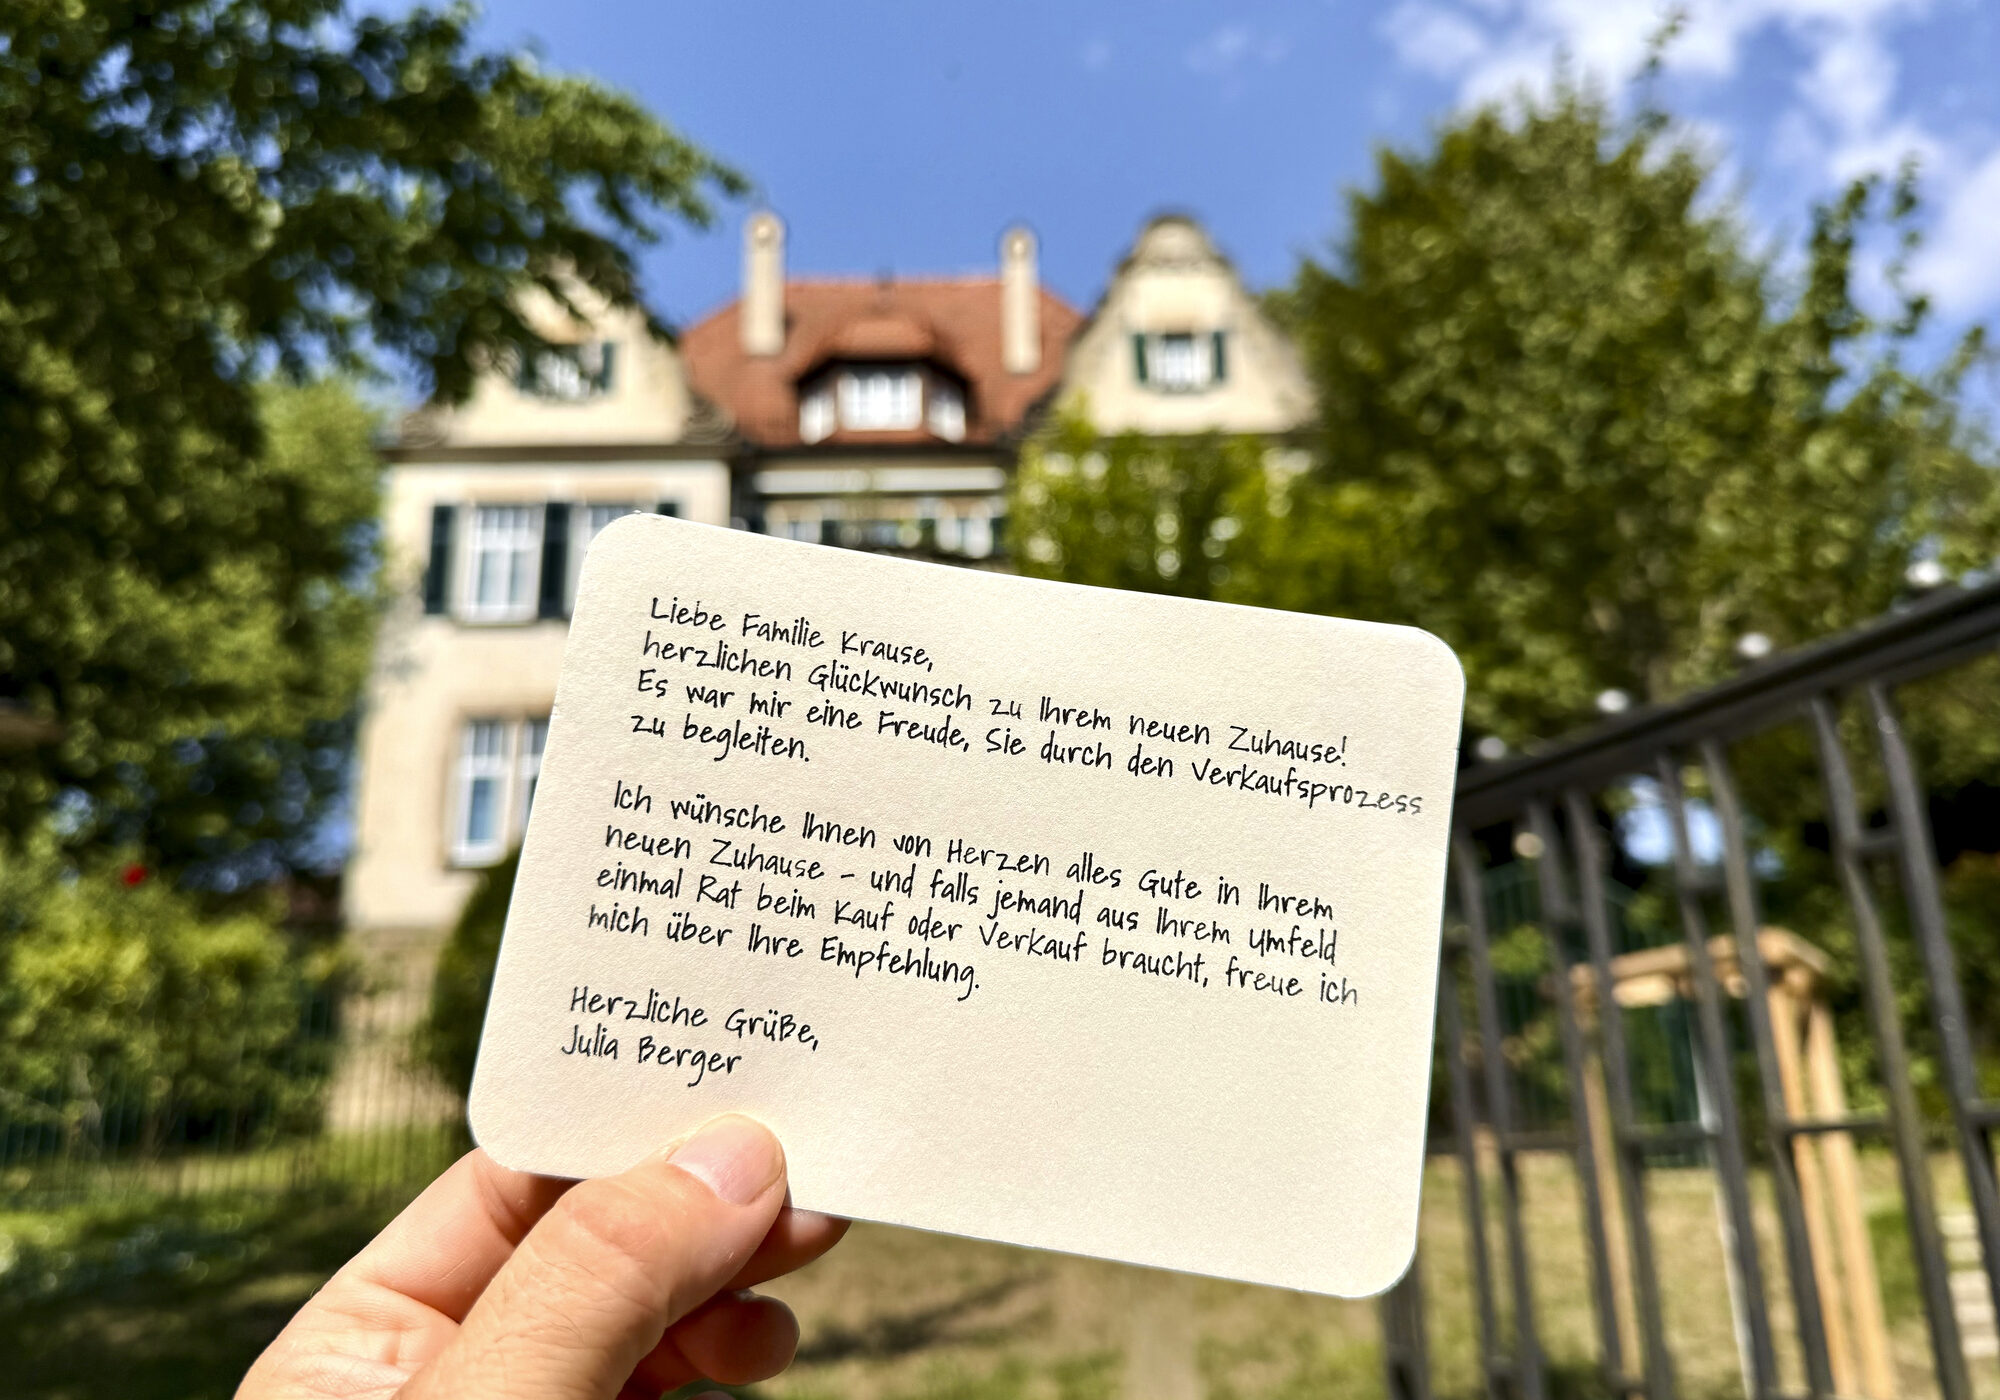 Liebe Familie Krause,
herzlichen Glückwunsch zu Ihrem neuen Zuhause!
Es war mir eine Freude, Sie durch den Verkaufsprozess
zu begleiten.
Ich wünsche Ihnen von Herzen alles Gute in Ihrem
neuen Zuhause – und falls jemand aus Ihrem Umfeld
einmal Rat beim Kauf oder Verkauf braucht, freue ich
mich über Ihre Empfehlung.
Herzliche Grüße,
Julia Berger